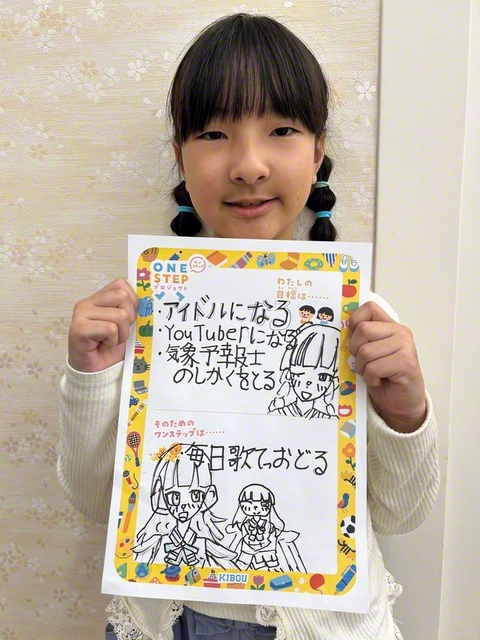 ONE
STEP
プロジェクト
わたしの
目標は……
・アイドルになる
・YouTuberになる
・気象予報士
のしかくをとる
そのための
ワンステップは……
・毎日歌っておどる
KIBOU